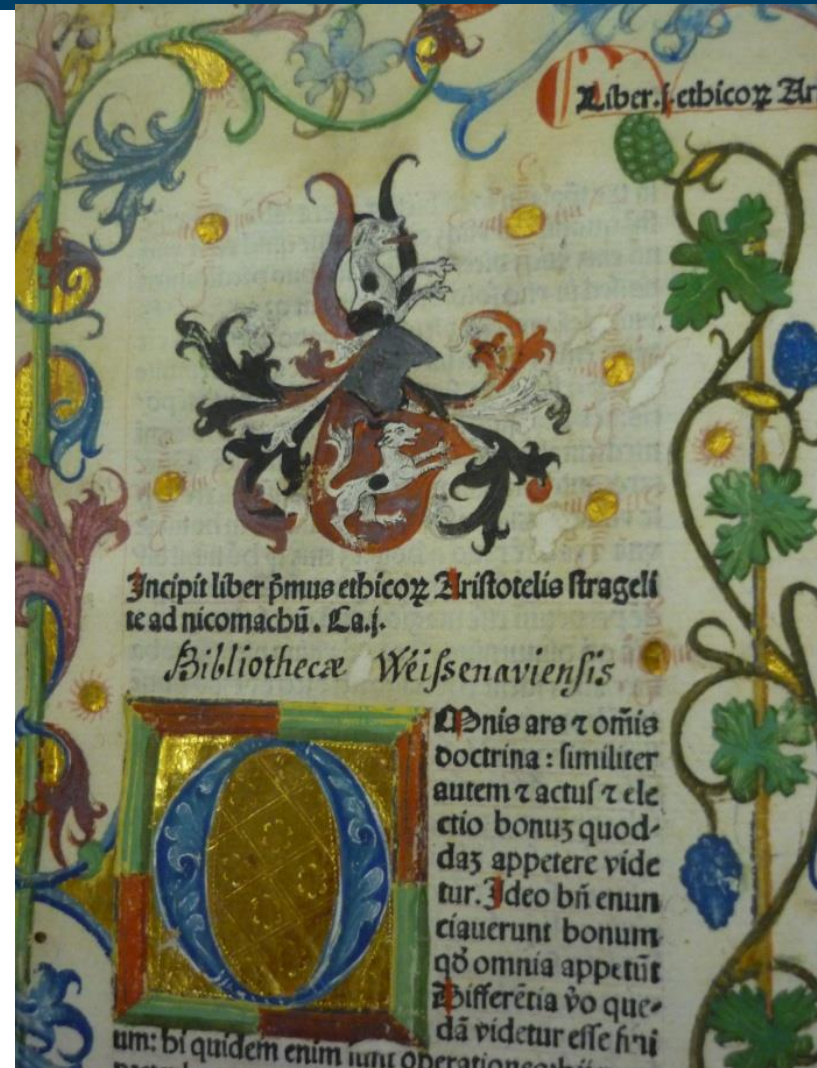 Liber .j. ethicoꝝ Ar
Incipit liber p̄mus ethicoꝝ Aristotelis strageli
te ad nicomachū. Ca.j.
Bibliothecæ Weissenaviensis
OMnis ars ⁊ om̄is
doctrina : similiter
autem ⁊ actus ⁊ ele
ctio bonuꝫ quod-
daꝫ appetere vide
tur. Ideo bn̄ enun
ciauerunt bonum
qđ omnia appetūt
Differētia v̊o que-
dā videtur esse fini
um: hi quidem enim sunt operationes